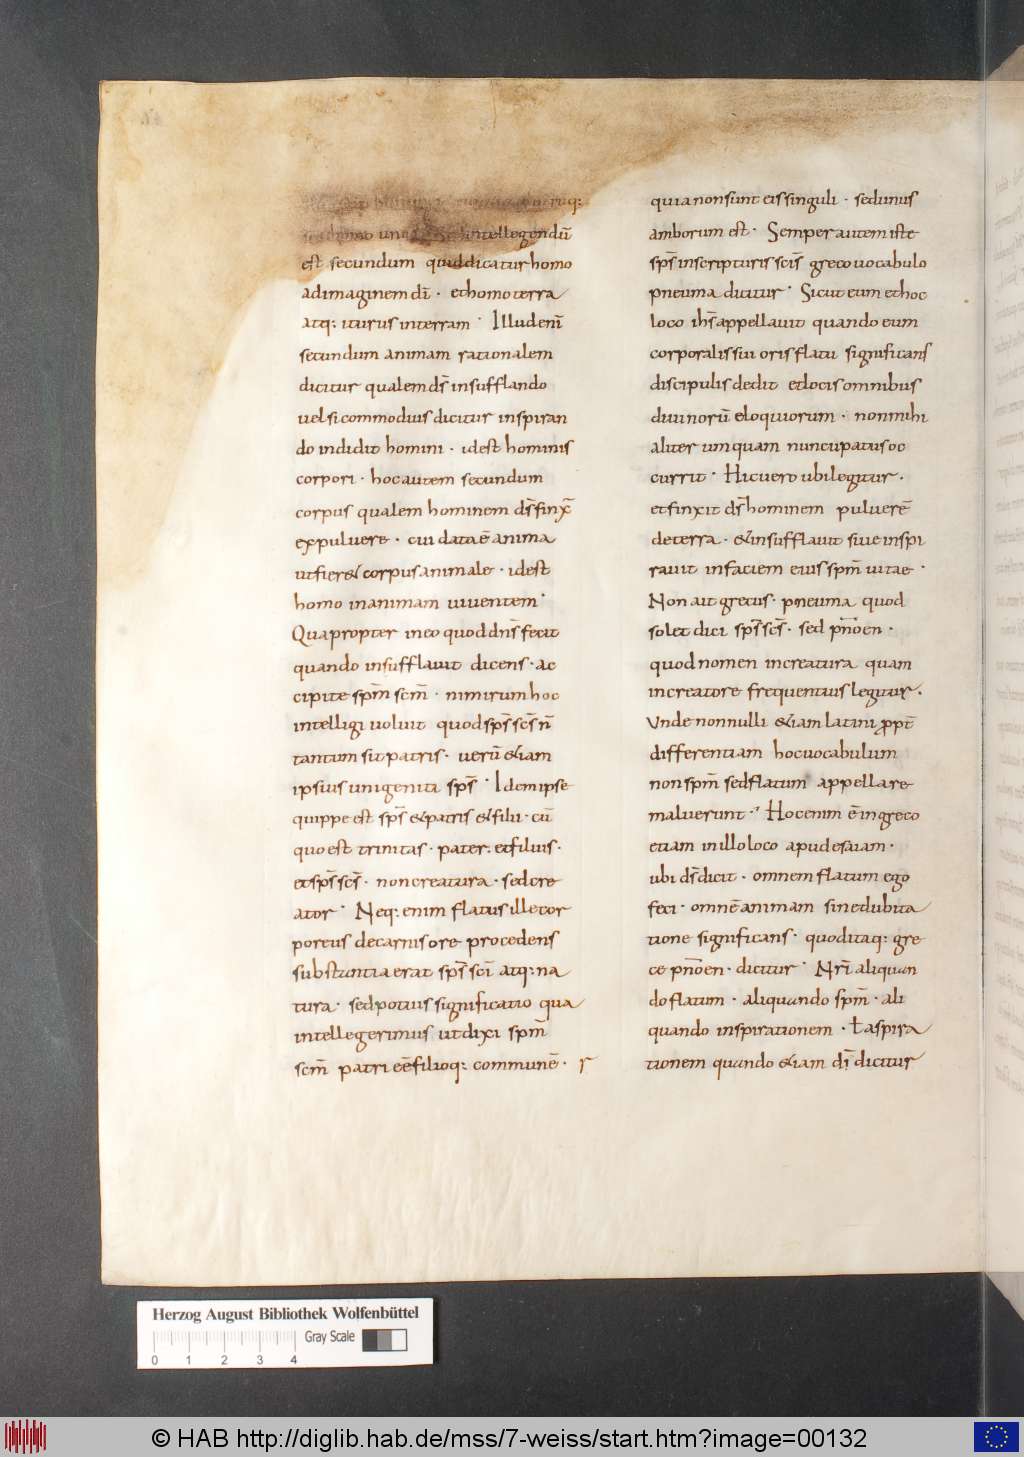 intellegendū
est secundum quid dicatur homo
ad imaginem dī · et homo terra
atq: iturus in terram · Illud enī
secundum animam rationalem
dicitur qualem ds̄ insufflando
uel si commodius dicitur inspiran
do indidit homini · id est hominis
corpori · hoc autem secundum
corpus qualem hominem ds̄ finx̄
ex puluere · cui data ē anima
ut fier& corpus animale · id est
homo in animam uiuentem ·
Quapropter in eo quod dn̄s fecit
quando insufflauit dicens · ac
cipite spm̄ scm̄ · nimirum hoc
intelligi uoluit quod sps̄ scs̄ n̄
tantum sit patris · uerū &iam
ipsius unigeniti sps̄ · Idem ipse
quippe est sps̄ & patris & filii · cū
quo est trinitas · pater: et filius ·
et sps̄ scs̄ · non creatura · sed cre
ator · Neq: enim flatus ille cor
poreus de carnis ore procedens
substantia erat sps̄ scī atq: na
tura · sed potius significatio qua
intellegerimus ut dixi spm̄
scm̄ patri eē filioq: communē · r
quia non sunt eis singuli · sed unus
amborum est · Semper autem iste
sps̄ in scripturis scīs greco uocabulo
pneuma dicitur · Sicut eum et hoc
loco ihs̄ appellauit quando eum
corporalis sui oris flatu significans
discipulis dedit et locis omnibus
diuinorū eloquiorum · non mihi
aliter umquam nuncupatus oc
currit · Hic uero ubi legitur ·
et finxit ds̄ hominem puluerē
de terra · & insufflauit siue inspi
rauit in faciem eius spm̄ uitae ·
Non ait grecus · pneuma quod
solet dici sps̄ scs̄ · sed pnoen ·
quod nomen in creatura quam
in creatore frequentius legitur ·
Vnde nonnulli &iam latini ꝓpt̄
differentiam hoc uocabulum
non spm̄ sed flatum appellare
maluerunt · Hoc enim ē in greco
etiam in illo loco apud esaiam ·
ubi ds̄ dicit · omnem flatum ego
feci · omnē animam sine dubita
tione significans · quod itaq: gre
ce pnoen · dicitur · Nr̄i aliquan
do flatum · aliquando spm̄ · ali
quando inspirationem · ƚ aspira
tionem quando &iam dī dicitur
Herzog August Bibliothek Wolfenbüttel
Gray Scale
0 1 2 3 4
© HAB http://diglib.hab.de/mss/7-weiss/start.htm?image=00132